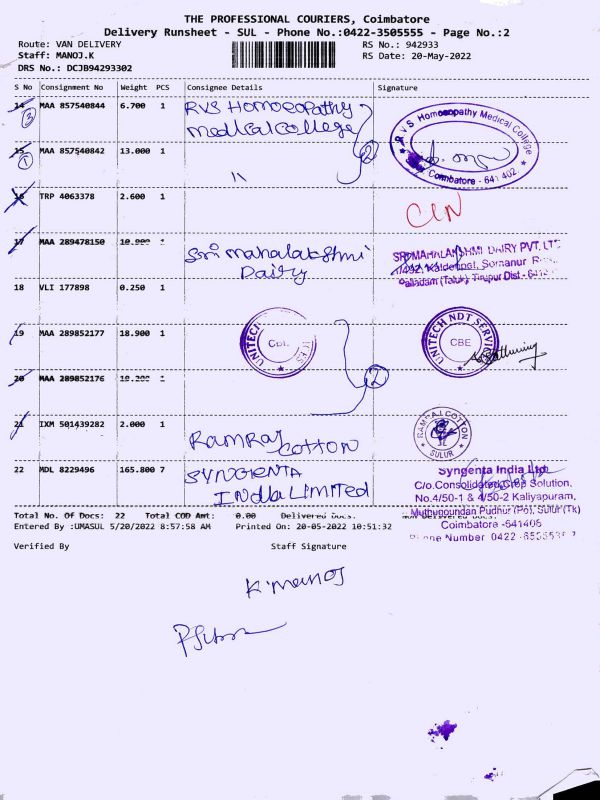 THE PROFESSIONAL COURIERS, Coimbatore
Delivery Runsheet - SUL - Phone No.:0422-3505555 - Page No.:2
Route: VAN DELIVERY
RS No.: 942933
Staff: MANOJ.K
RS Date: 20-May-2022
DRS No.: DCJB94293302
S No Consignment No Weight PCS Consignee Details Signature
14 MAA 857540844 6.700 1 RVS Homoeopathy
3
Medical College
2
RVS Homoeopathy Medical College
Sulur Coimbatore - 641 402
15 MAA 857540842 13.000 1 "
1
16 TRP 4063378 2.600 1
17 MAA 289478150 10.900 1 Sri mahalakshmi
Dairy
SRI MAHALAKSHMI DAIRY PVT. LTD
Palladam (Taluk), Tirupur Dist -
18 VLI 177898 0.250 1
19 MAA 289852177 18.900 1
UNITECH
UNITECH NDT SERVICES
CBE
20 MAA 289852176 1
2
21 IXM 501439282 2.000 1 RAMRAJ
COTTON
RAMRAJ COTTON
SULUR
22 MDL 8229496 165.800 7 SYNGENTA
INdia LIMITED
Syngenta India Ltd
C/o.Consolidated Crop Solution,
No.4/50-1 & 4/50-2 Kaliyapuram,
Muthugoundan Pudhur (Po), Sulur (Tk)
Coimbatore -641406
Phone Number 0422
Total No. Of Docs: 22 Total COD Amt: 0.00 Delivered Docs: Non Delivered Docs:
Entered By :UMASUL 5/20/2022 8:57:58 AM Printed On: 20-05-2022 10:51:32
Verified By Staff Signature
K. Manoj